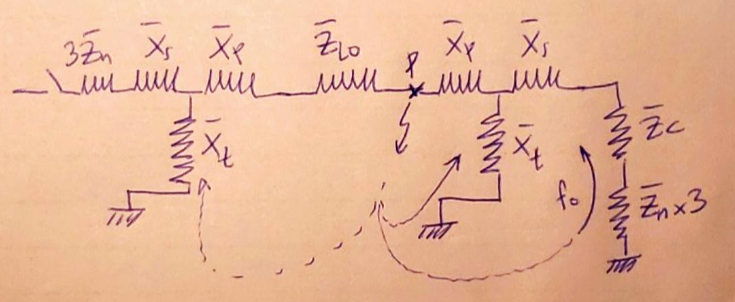 3Z̄n X̄s X̄p Z̄Lo P X̄p X̄s
X̄t X̄t Z̄c
fo Z̄n×3